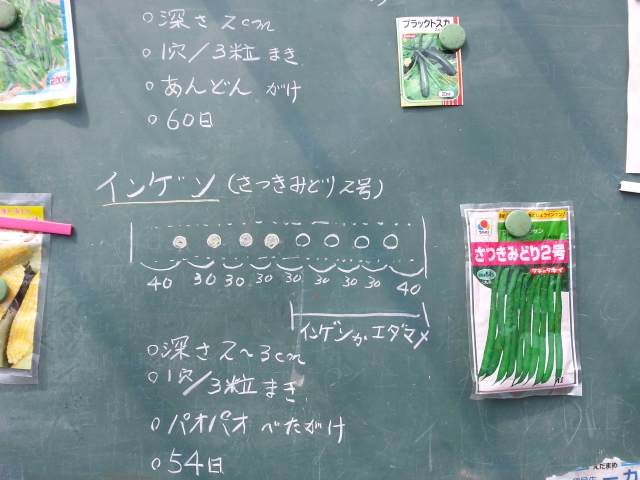 ○深さ2cm
○1穴/3粒まき
○あんどんがけ
○60日
ブラックトスカ
2000
インゲン(さつきみどり2号)
40 30 30 30 30 30 30 30 40
インゲンかエダマメ
○深さ2~3cm
○1穴/3粒まき
○パオパオべたがけ
○54日
さつきみどり2号
タキイ
えだまめ